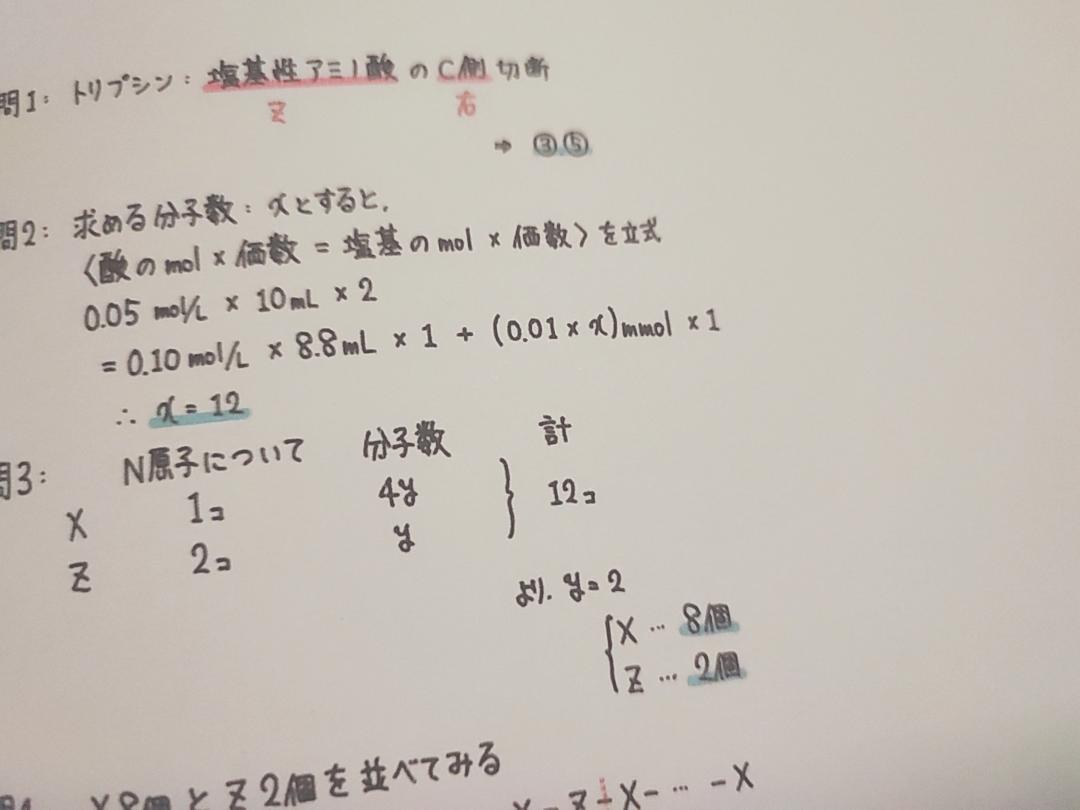 問1: トリプシン: 塩基性アミノ酸のC側切断
Z 右
⇒ ③⑤
問2: 求める分子数: xとすると,
〈酸のmol × 価数 = 塩基のmol × 価数〉を立式
0.05 mol/L × 10mL × 2
= 0.10 mol/L × 8.8mL × 1 + (0.01 × x)mmol × 1
∴ x = 12
問3: N原子について 分子数 計
X 1コ 4y } 12コ
Z 2コ y
より. y = 2
{ X … 8個
Z … 2個
X8個とZ2個を並べてみる
X-Z-X-…-X